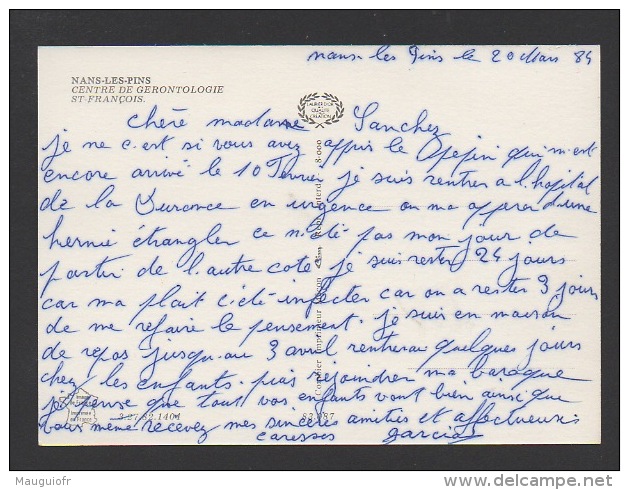 nans-les Pins le 20 Mars 84
NANS-LES-PINS
CENTRE DE GERONTOLOGIE
ST-FRANÇOIS.
chère madame Sanchez
je ne c.est si vous avez appris le Pepin qui m.est
encore arrivé le 10 Février je suis rentrer a l.hopital
de la Durance en urgence on ma opperer d.une
hernie étrangler ce n.été pas mon jour de
partir de l.autre coté je suis rester 24 jours
car ma plait c'été infecter car on a rester 3 jours
de me refaire le pensement. je suis en maison
de repos jusqu.au 3 avril rentrerai quelques jours
chez les enfants. puis rejoindrer ma baraque
j'éspense que tout vos enfants vont bien ainsi que
vous meme recevez mes sincères amitiés et affectueuses
caresses garcia
9.27.82.1404
Mauguiofr
www.delcampe.net